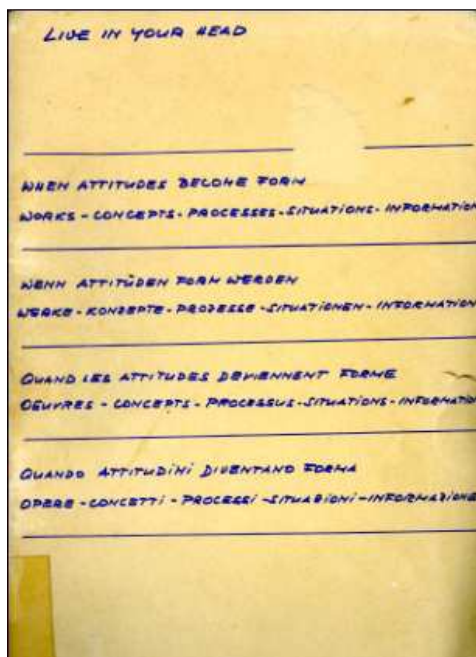 LIVE IN YOUR HEAD
WHEN ATTITUDES BECOME FORM
WORKS - CONCEPTS - PROCESSES - SITUATIONS - INFORMATION
WENN ATTITÜDEN FORM WERDEN
WERKE - KONZEPTE - PROZESSE - SITUATIONEN - INFORMATION
QUAND LES ATTITUDES DEVIENNENT FORME
OEUVRES - CONCEPTS - PROCESSUS - SITUATIONS - INFORMATION
QUANDO ATTITUDINI DIVENTANO FORMA
OPERE - CONCETTI - PROCESSI - SITUAZIONI - INFORMAZIONE